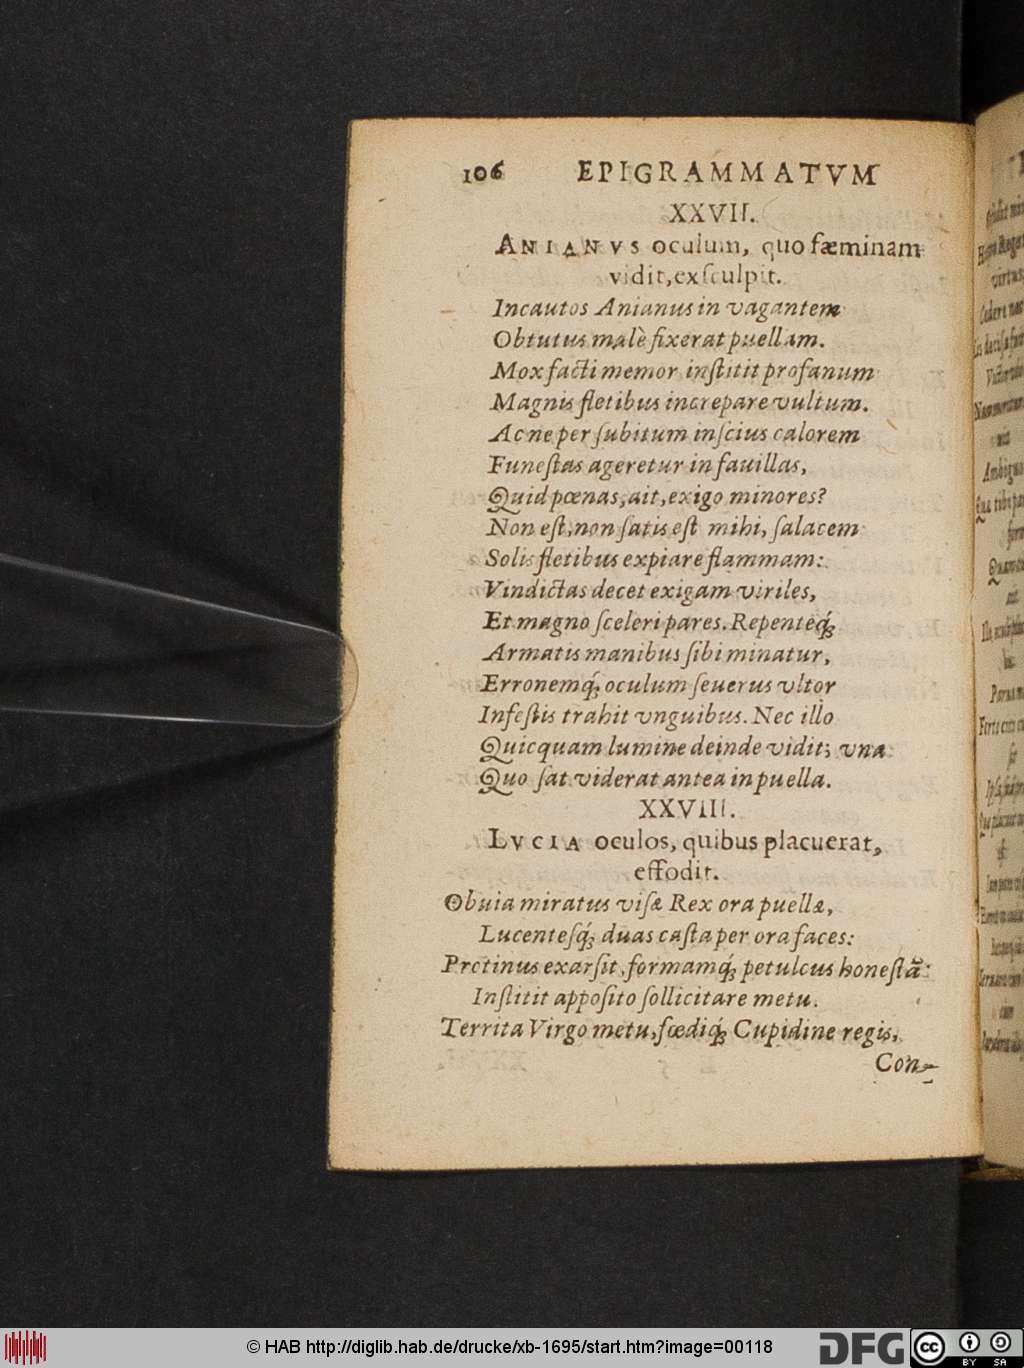 106 EPIGRAMMATVM
XXVII.
ANIANVS oculum, quo fæminam
vidit, exſculpit.
Incautos Anianus in vagantem
Obtutus malè fixerat puellam.
Mox facti memor inſtitit profanum
Magnis fletibus increpare vultum.
Ac ne per ſubitum inſcius calorem
Funeſtas ageretur in fauillas,
Quid pœnas, ait, exigo minores?
Non eſt, non ſatis eſt mihi, ſalacem
Solis fletibus expiare flammam:
Vindictas decet exigam viriles,
Et magno ſceleri pares. Repenteq́;
Armatis manibus ſibi minatur,
Erronemq́; oculum ſeuerus vltor
Infeſtis trahit vnguibus. Nec illo
Quicquam lumine deinde vidit; vna
Quo ſat viderat antea in puella.
XXVIII.
LVCIA oculos, quibus placuerat,
effodit.
Obuia miratus viſæ Rex ora puellæ,
Lucenteſq́; duas caſta per ora faces:
Protinus exarſit, formamq́; petulcus honeſtã:
Inſtitit appoſito ſollicitare metu.
Territa Virgo metu, fœdiq́; Cupidine regis,
Con-
© HAB http://diglib.hab.de/drucke/xb-1695/start.htm?image=00118
DFG
cc
BY SA